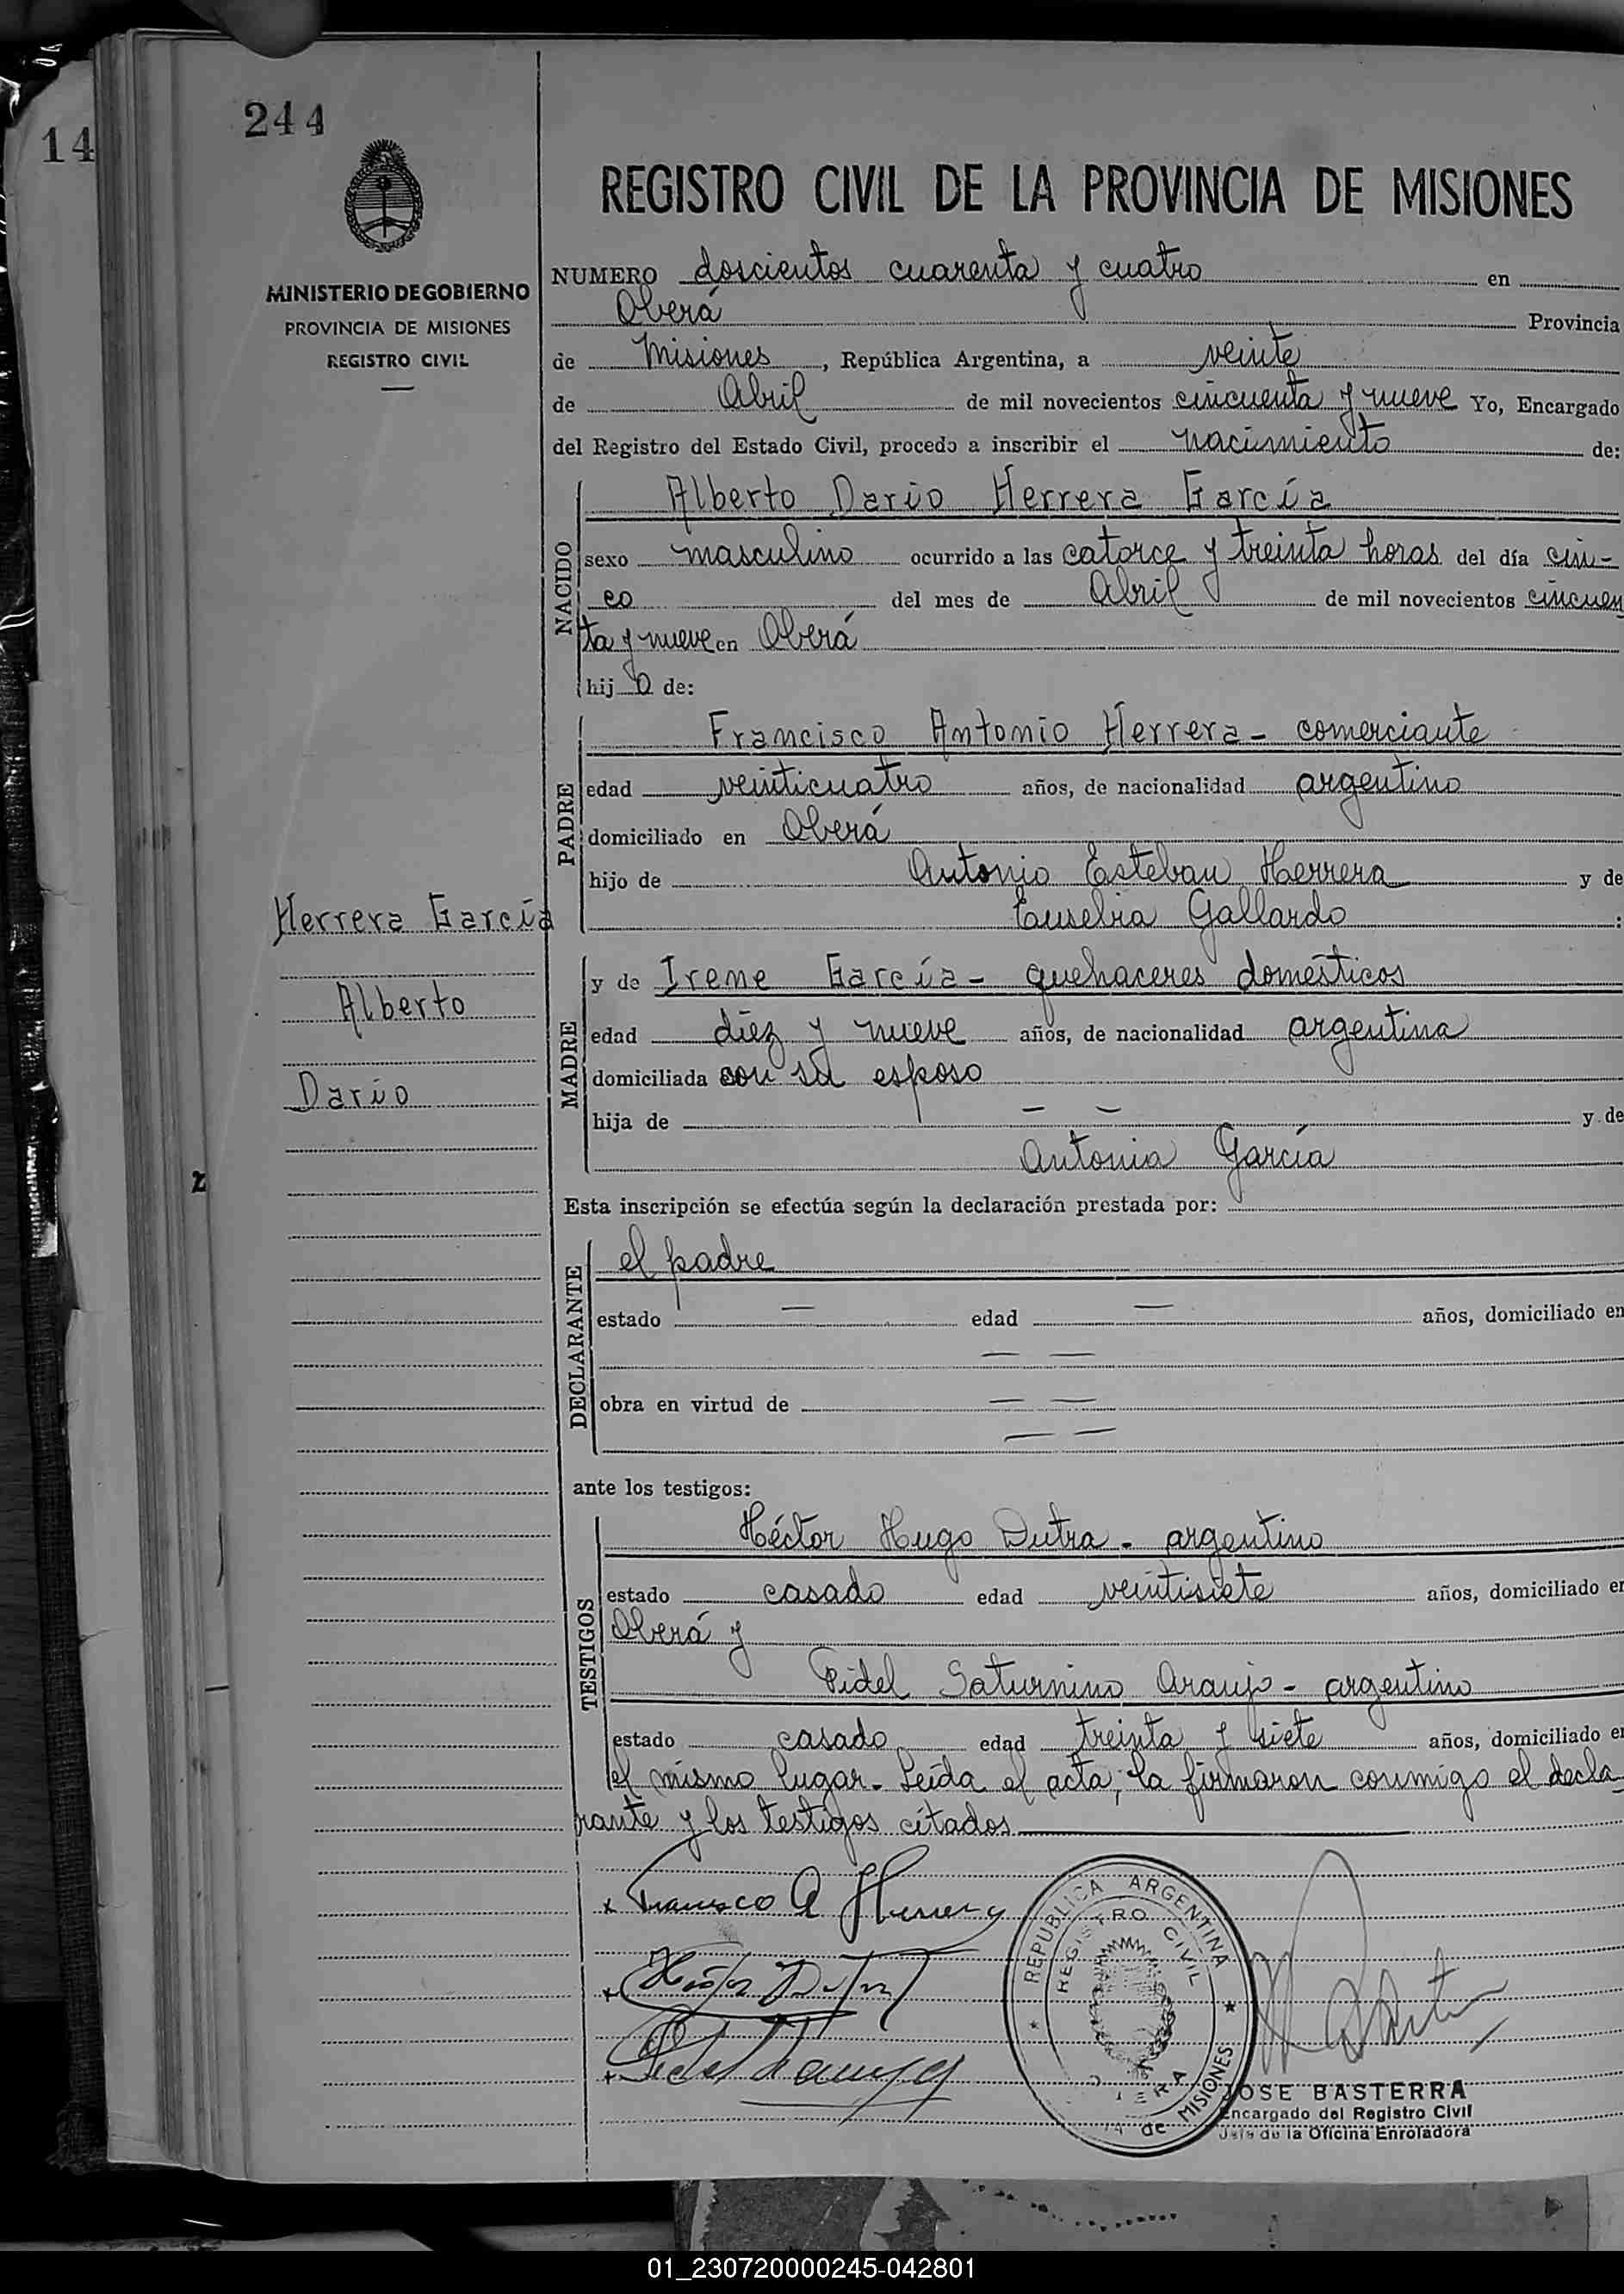 14
244
MINISTERIO DE GOBIERNO
PROVINCIA DE MISIONES
REGISTRO CIVIL
Herrera García
Alberto
Dario
REGISTRO CIVIL DE LA PROVINCIA DE MISIONES
NUMERO doscientos cuarenta y cuatro en
Oberá Provincia
de Misiones, República Argentina, a veinte
de Abril de mil novecientos cincuenta y nueve Yo, Encargado
del Registro del Estado Civil, procedo a inscribir el nacimiento de:
NACIDO
Alberto Dario Herrera García
sexo masculino ocurrido a las catorce y treinta horas del día cin-
co del mes de Abril de mil novecientos cincuen
ta y nueve en Oberá
hijo de:
PADRE
Francisco Antonio Herrera - comerciante
edad veinticuatro años, de nacionalidad argentino
domiciliado en Oberá
hijo de Antonio Esteban Herrera y de
Eusebia Gallardo :
MADRE
y de Irene García - quehaceres domésticos
edad diez y nueve años, de nacionalidad argentina
domiciliada con su esposo
hija de — — y de
Antonia García
Esta inscripción se efectúa según la declaración prestada por:
DECLARANTE
el padre
estado — edad — años, domiciliado en
— —
obra en virtud de — —
— —
ante los testigos:
TESTIGOS
Héctor Hugo Dutra - argentino
estado casado edad veintisiete años, domiciliado en
Oberá y
Fidel Saturnino Araujo - argentino
estado casado edad treinta y siete años, domiciliado en
el mismo lugar. Leída el acta, la firmaron conmigo el decla
rante y los testigos citados
x Francisco A Herrera
REPUBLICA ARGENTINA
REGISTRO CIVIL
de MISIONES
JOSE BASTERRA
Encargado del Registro Civil
Jefe de la Oficina Enroladora
01_230720000245-042801